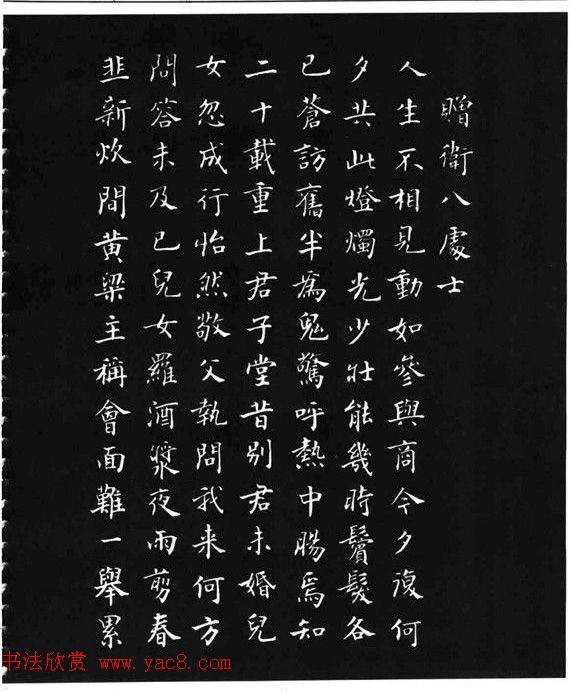 贈衛八處士
人生不相見動如參與商今夕復何
夕共此燈燭光少壯能幾時鬢髮各
已蒼訪舊半爲鬼驚呼熱中腸焉知
二十載重上君子堂昔別君未婚兒
女忽成行怡然敬父執問我来何方
問答未及已兒女羅酒漿夜雨剪春
韭新炊間黄粱主稱會面難一舉累
书法欣赏 www.yac8.com